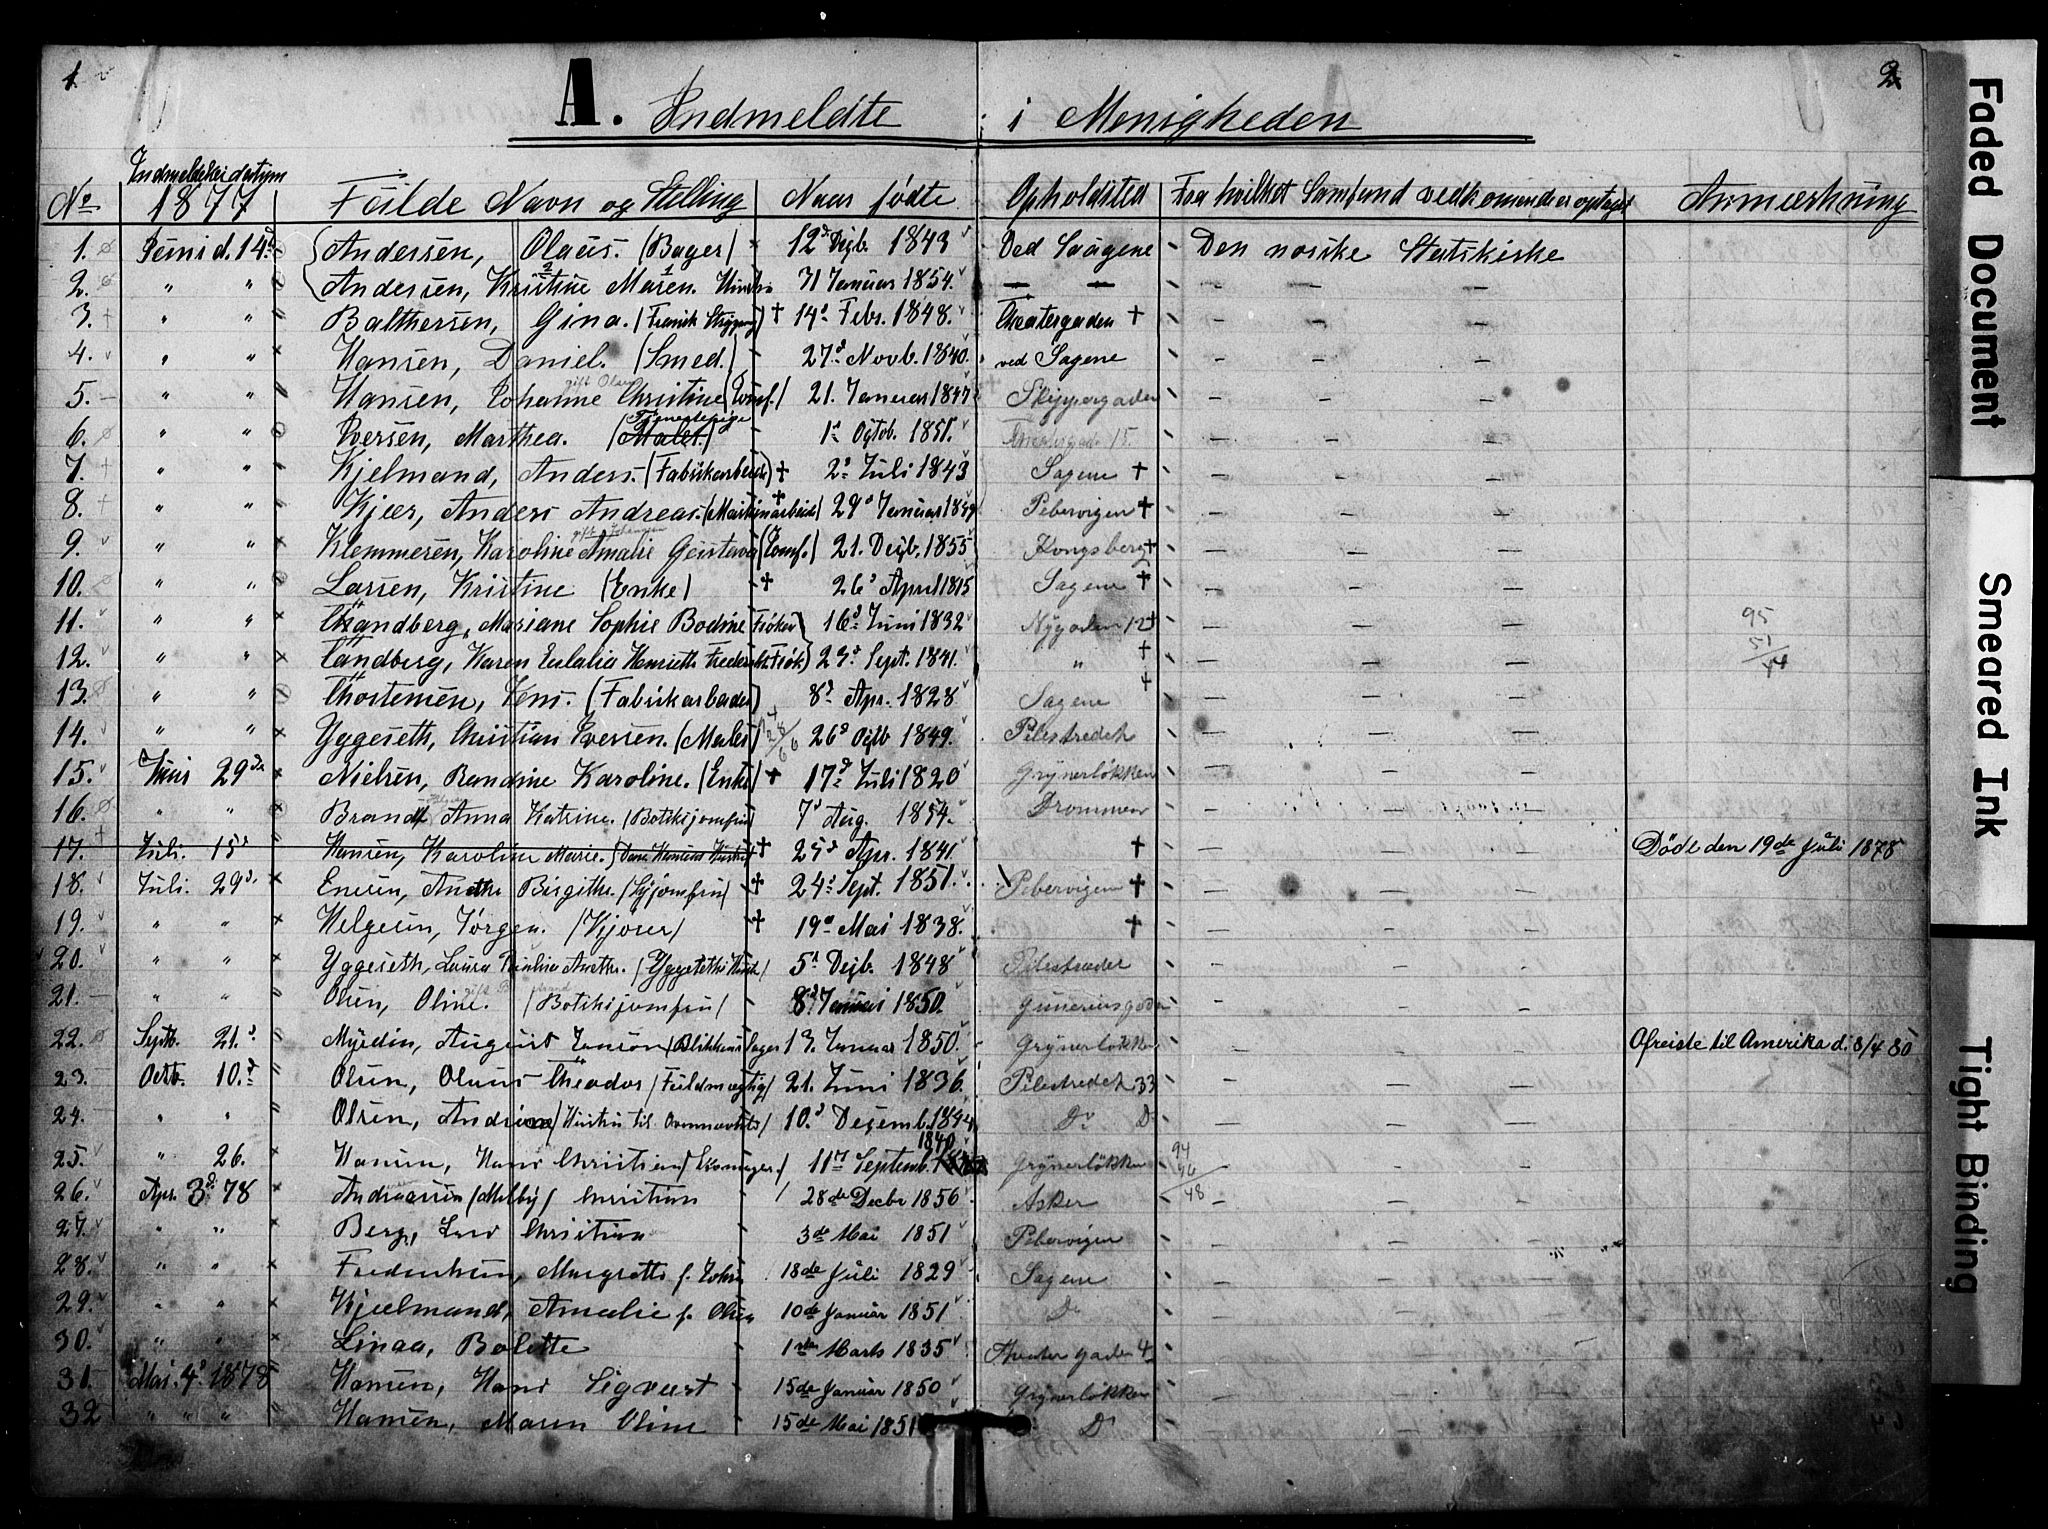 1 2
A. Indmeldte i Menigheden
Indmeldelsesdatum
No 1877 Fulde Navn og Stilling Naar fødte Opholdsted Fra hvilket Samfund vedkommende er optaget Anmærkning
1. Juni d. 14d Andersen, Olaus. (Bager) 12d Dejb. 1843 Ved Saugene Den norske Statskirke
2. " " Andersen, Kristine Maren. Hustru 31 Januar 1854. — — — — —
3. " " Balthersen, Gina. † 14d Febr. 1848. Theatergaden † — — —
4. " " Hansen, Daniel. (Smed.) 27d Novb. 1840. ved Sagene — — —
5. " " Hansen, Johanne Christine (Jomf.) 21. Januar 1847 Skippergaden — — —
gift Olsen
6. " " Iversen, Marthea. (Maler.) Tjenestepige 1d Ogtob. 1851. 15. — — —
7. " " Kjelmand, Anders. (Fabrikarbeid.) † 2d Juli 1843 Sagene † — — —
8. " " Kjær, Anders Andreas. (Maskinarbeid) † 29d Januar 1849 Pebervigen † — — —
9. " " Klemmesen, Karoline Amalie Gustava (Jomf.) 21. Dejb. 1855 Kongsberg † — — —
gift Johansen
10. " " Larsen, Kristine (Enke) † 26d April 1815 Sagene † — — —
11. " " Thandberg, Mariane Sophie Bodine Frøken 16d Juni 1832 Nygaden 12 † — — — 95
12. " " Tandberg, Karen Eulalia Henriette Frederikke Frøk 23d Sept. 1841. " † — — — 51/44
13. " " Thostensen, Jens. (Fabrikarbeider) 8d Apr. 1828 Sagene † — — —
14. " " Yggeseth, Christian Iversen. (Maler) 26d Ojtb 1849. Pilestredet — — —
15. Juni 29de Nielsen, Randine Karoline. (Enke) † 17d Juli 1820 Grynerløkken — — —
16. " " Brandt, Anna Katrine. (Botikjomfru) 7d Aug. 1854. Drammen — — —
17. Juli. 15d Hansen, Karoline Marie. † 25d Apr. 1841. † Døde den 19de Juli 1878
18. Juli. 29d. Enesen, Anethe Birgithe. (Syjomfru) † 24d Sept. 1851. Pebervigen † — — —
19. " " Helgesen, Jørgen. (Kjører) † 19d Mai 1838. † — — —
20. " " Yggeseth, Laura Paulina Anethe. (Yggeseths Hust) 5d Dejb. 1848 Pilestrædet — — —
21. " " Olsen, Oline. (Botikjomfru) 8d Januar 1850. Gunerius gaden — — —
22. Septb. 21.d Myrdin, August Janson (Blikkenslager 13. Januar 1850. Grynerløkken — — — Afreiste til Amerika d. 8/4 80
23. Octb. 10.d Olsen, Olaus Theodor (Fuldmægtig) 21. Juni 1836. Pilestredet 33 — — —
24. " " Olsen, Andrine (Hustru til Ovennævnte) 10.d Dezemb. 1844 Do Do — — —
25. " 26. Hansen, Hans Christian (Skomager.) 11d Septemb. 1840 Grynerløkken 94 44/48 — — —
26. Apr. 3d. 78 Andreassen (Melby) Christian 28de Decbr 1856 Asker — — —
27. " " Berg, Lars Christian 3de Mai 1851 Pebervigen — — —
28. " " Frederiksen, Margrethe f. Johns 18de Juli 1829 Sagene — — —
29. " " Kjælmand, Amalie f. Olsen 10de Januar 1851 Do — — —
30. " " Linaa, Bolette 1ste Marts 1835 Theater gaden 4 — — —
31. Mai. 4d. 1878 Hansen, Hans Sigvart 15de Januar 1850 Grynerløkken — — —
32 " " " Hansen, Maren Oline 15de Mai 1851 Do — — —
Faded Document
Smeared Ink
Tight Binding